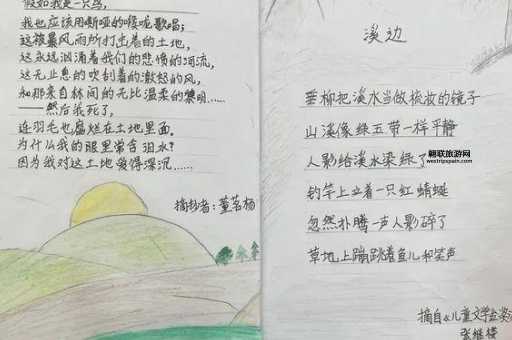 假如我是一只鸟，
我也应该用嘶哑的喉咙歌唱；
这被暴风雨所打击着的土地，
这永远汹涌着我们的悲愤的河流，
这无止息的吹刮着的激怒的风，
和那来自林间的无比温柔的黎明……
——然后我死了，
连羽毛也腐烂在土地里面。
为什么我的眼里常含泪水？
因为我对这土地爱得深沉……
摘抄者：董茗杨
溪边
垂柳把溪水当做梳妆的镜子
山溪像绿玉带一样平静
人影给溪水染绿了
钓竿上立着一只红蜻蜓
忽然扑腾一声人影碎了
草地上蹦跳着鱼儿和笑声
摘自《儿童文学
张继楼
翱联旅游网
westripspain.com